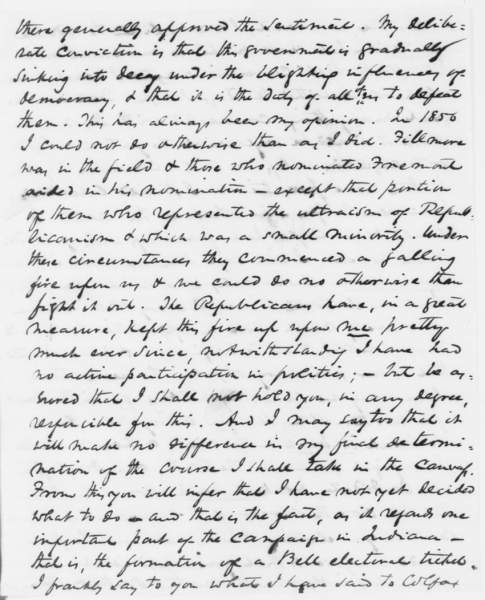 there generally approved the sentiment. My delibe-
rate conviction is that this government is gradually
sinking into decay under the blighting influences of
democracy, & that it is the duty of all of us to defeat
them. This has always been my opinion. In 1856
I could not do otherwise than as I did. Fillmore
was in the field & those who nominated Fremont
aided in his nomination – except that portion
of them who represented the ultraism of Repub-
licanism & which was a small minority. Under
these circumstances they commenced a galling
fire upon us & we could do no otherwise than
fight it out. The Republicans have, in a great
measure, kept this fire up upon me pretty
much ever since, notwithstanding I have had
no active participation in politics; – but be as-
sured that I shall not hold you, in any degree,
responsible for this. And I may say too that it
will make no difference in my final determi-
nation of the course I shall take in the canvass.
From this you will infer that I have not yet decided
what to do – and that is the fact, as it regards one
important part of the campaign in Indiana –
that is, the formation of a Bell electoral ticket.
I frankly say to you what I have said to Colfax